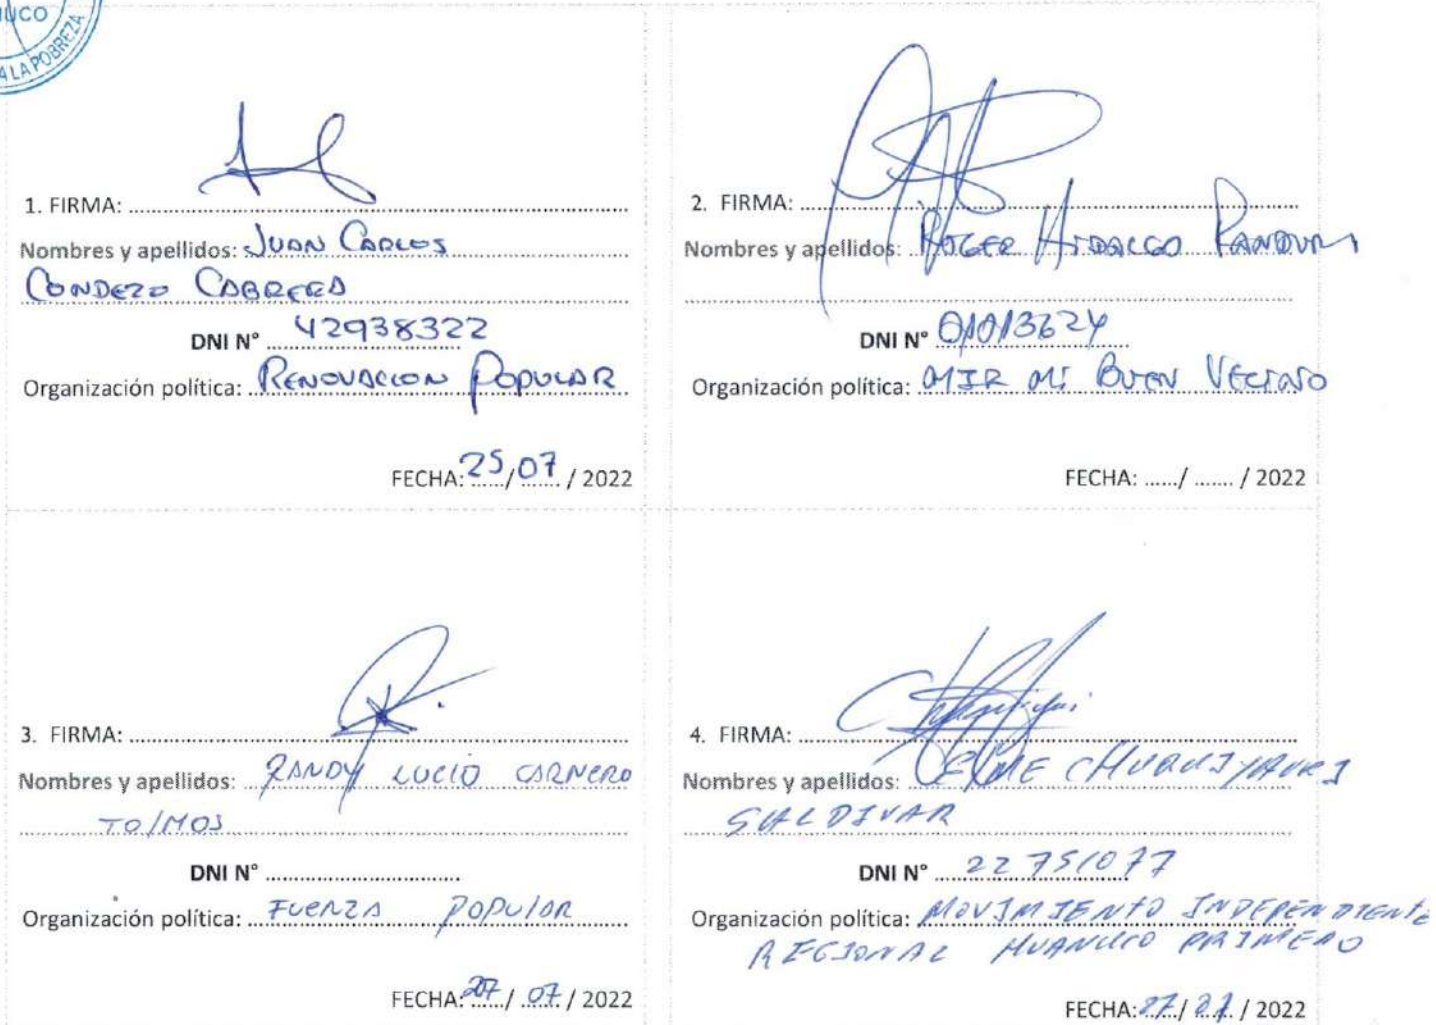 NUCO
A LA POBREZA
1. FIRMA:
Nombres y apellidos: JUAN CARLOS
CONDEZO CABRERA
DNI N° 42938322
Organización política: RENOVACION POPULAR
FECHA: 25/07/2022
2. FIRMA:
Nombres y apellidos: ROGER HIDALGO PANDURI
DNI N° 01013624
Organización política: MIR Mi BUEN VECINO
FECHA: ....../ ....... / 2022
3. FIRMA:
Nombres y apellidos: RANDY LUCIO CARNERO
DNI N°
Organización política: FUERZA POPULAR
FECHA: 27/ 07 / 2022
4. FIRMA:
Nombres y apellidos: CHUQUIYAURI
SALDIVAR
DNI N° 22751077
Organización política: MOVIMIENTO INDEPENDIENTE
REGIONAL HUANUCO PRIMERO
FECHA: / 2022